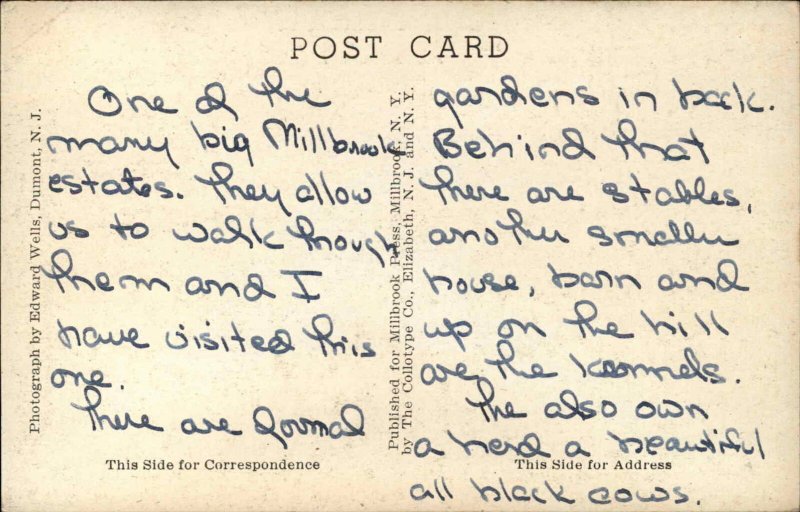 POST CARD
One of the
many big Millbrook
estates. They allow
us to walk though
them and I
have visited this
one.
There are formal
gardens in back.
Behind that
there are stables,
another smaller
house, barn and
up on the hill
are the kennels.
The also own
a herd a beautiful
all black cows.
This Side for Correspondence
This Side for Address
Photograph by Edward Wells, Dumont, N. J.
Published for Millbrook Press, Millbrook, N. Y.
by The Collotype Co., Elizabeth, N. J. and N. Y.